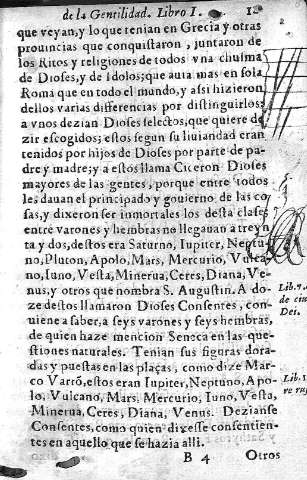 de la Gentilidad. Libro I. 12
que veyan, y lo que tenian en Grecia y otras
prouincias que conquistaron, juntaron de
los Ritos y religiones de todos vna chusma
de Dioses, y de Idolos; que auia mas en sola
Roma que en todo el mundo, y assi hizieron
dellos varias differencias por distinguirlos:
a vnos dezian Dioses selectos, que quiere de
zir escogidos; estos segun su liuiandad eran
tenidos por hijos de Dioses por parte de pa-
dre y madre; y a estos llama Ciceron Dioses
mayores de las gentes, porque entre todos
les, dauan el principado y gouierno de las co
sas, y dixeron ser inmortales los desta clase;
entre varones y hembras no llegauan a treyn
ta y dos, destos era Saturno, Iupiter, Neptu-
no, Pluton, Apolo, Mars, Mercurio, Vulca-
no, Iuno, Vesta, Minerua, Ceres, Diana, Ve-
nus, y otros que nombra S. Augustin. A do-
ze destos llamaron Dioses Consentes, con-
uiene a saber, a seys varones y seys hembras,
de quien haze mencion Seneca en las que-
stiones naturales. Tenian sus figuras dora-
das y puestas en las plaças, como dize Mar-
co Varrõ, estos eran Iupiter, Neptuno, Apo-
lo, Vulcano, Mars, Mercurio, Iuno, Vesta,
Minerua, Ceres, Diana, Venus. Dezianse
Consentes, como quien dixesse consentien-
tes en aquello que se hazia alli.
B 4 Otros
Lib. 7.
de ciu
Dei.
Lib. 1.
re rus